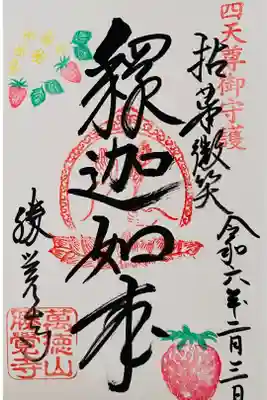 四天尊御守護
拈華微笑
令和六年二月三日
釋迦如来
勝覚寺
萬徳山
勝覺寺